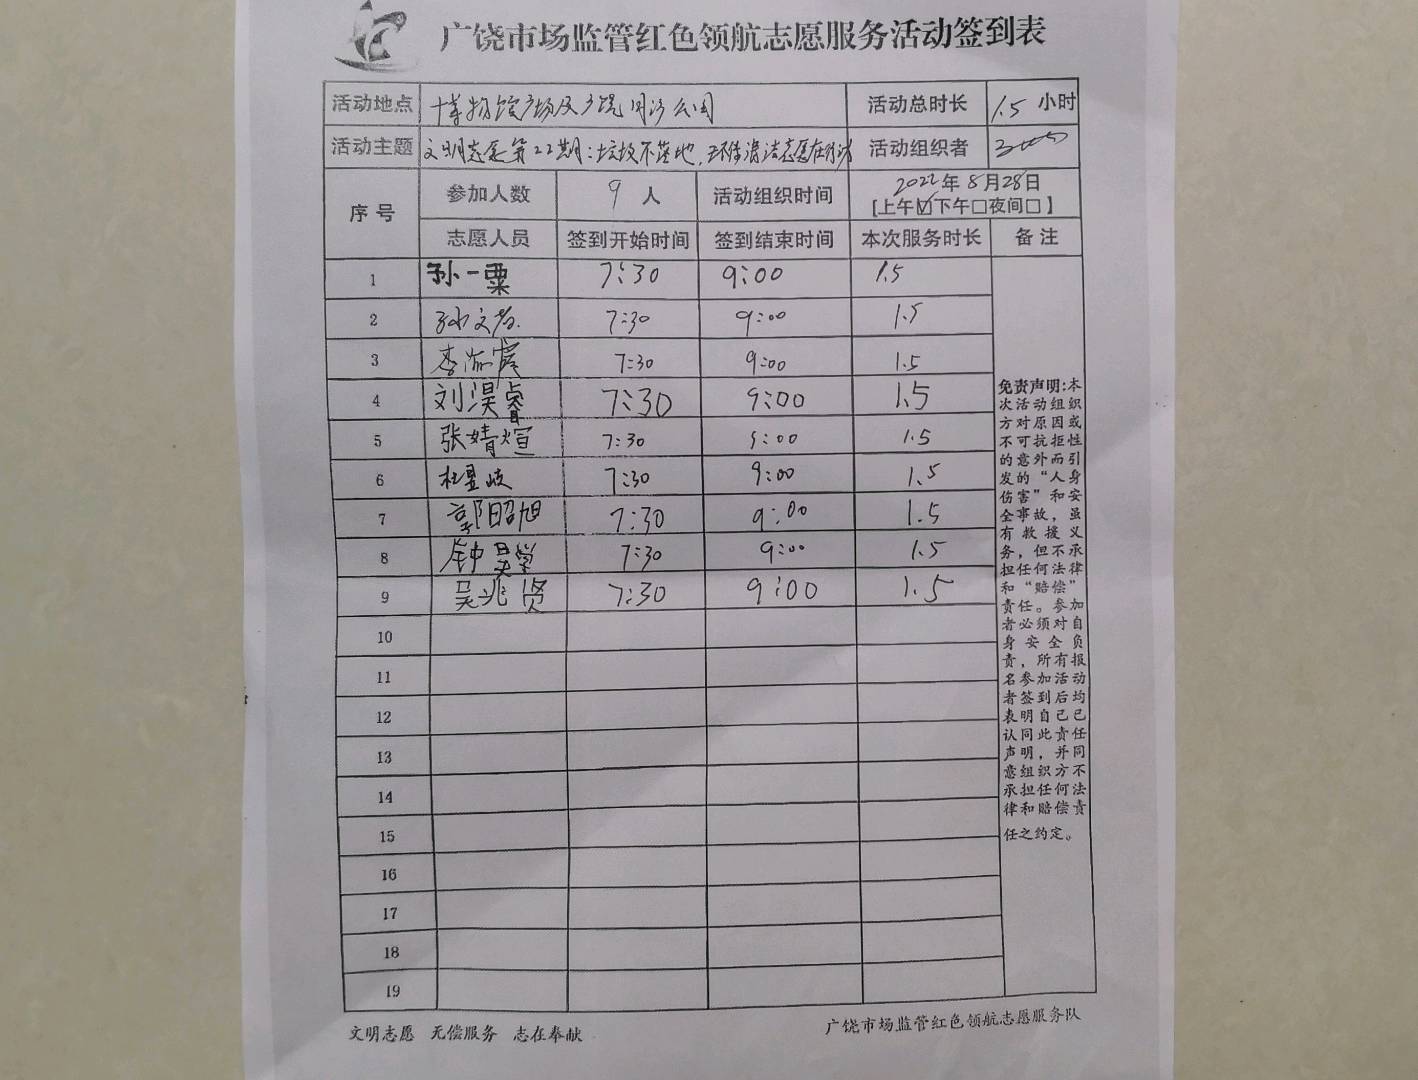 广饶市场监管红色领航志愿服务活动签到表
活动地点 博物馆广场及广饶 公园 活动总时长 1.5 小时
活动主题 文明志愿第22期:垃圾不落地,环保清洁志愿在行动 活动组织者
序号 参加人数 9 人 活动组织时间 2022年8月28日
[上午☑下午□夜间□]
志愿人员 签到开始时间 签到结束时间 本次服务时长 备注
1 孙一粟 7:30 9:00 1.5
2 孙文 7:30 9:00 1.5
3 李 7:30 9:00 1.5
4 刘淏睿 7:30 9:00 1.5
5 张婧煊 7:30 9:00 1.5
6 杜昱岐 7:30 9:00 1.5
7 郭昭旭 7:30 9:00 1.5
8 钟昊 7:30 9:00 1.5
9 吴兆贤 7:30 9:00 1.5
10
11
12
13
14
15
16
17
18
19
免责声明:本
次活动组织
方对原因或
不可抗拒性
的意外而引
发的“人身
伤害”和安
全事故,虽
有救援义
务,但不承
担任何法律
和“赔偿”
责任。参加
者必须对自
身安全负
责,所有报
名参加活动
者签到后均
表明自己已
认同此责任
声明,并同
意组织方不
承担任何法
律和赔偿责
任之约定。
文明志愿 无偿服务 志在奉献
广饶市场监管红色领航志愿服务队